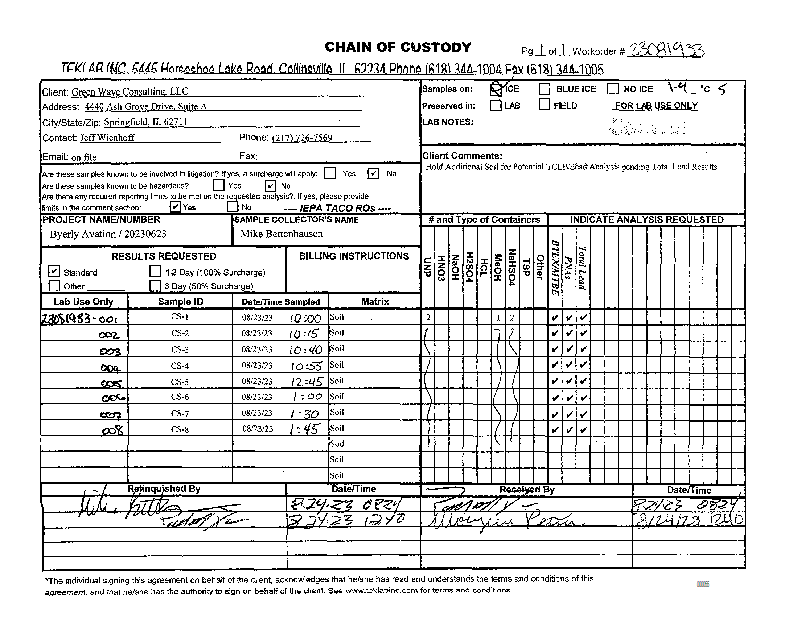 CHAIN OF CUSTODY
Pg 1 of 1 Workorder # 23081983
TEKLAB INC. 5445 Horseshoe Lake Road, Collinsville IL 62234 Phone (618) 344-1004 Fax (618) 344-1005
Client: Green Wave Consulting, LLC
Address: 4440 Ash Grove Drive, Suite A
City/State/Zip: Springfield, IL 62711
Contact: Jeff Wienhoff Phone: (217) 726-7569
Email: on file Fax:
Samples on: ICE BLUE ICE NO ICE °C
Preserved in: LAB FIELD FOR LAB USE ONLY
LAB NOTES:
Client Comments:
Hold Additional Soil for Potential TCLP Lead Analysis pending Total Lead Results
Are these samples known to be involved in litigation? If yes, a surcharge will apply: Yes ✔ No
Are these samples known to be hazardous? Yes ✔ No
Are there any required reporting limits to be met on the requested analysis?. If yes, please provide
limits in the comment section: ✔ Yes No ---- IEPA TACO ROs ----
PROJECT NAME/NUMBER SAMPLE COLLECTOR'S NAME
Byerly Avation / 20230623 Mike Bertenhausen
# and Type of Containers INDICATE ANALYSIS REQUESTED
RESULTS REQUESTED BILLING INSTRUCTIONS
✔ Standard 1-2 Day (100% Surcharge)
Other 3 Day (50% Surcharge)
UNP HNO3 NaOH H2SO4 HCL MeOH NaHSO4 TSP Other BTEX/MTBE PNAs Total Lead
Lab Use Only Sample ID Date/Time Sampled Matrix
23081983-001 CS-1 08/23/23 10:00 Soil 2 1 2 ✔ ✔ ✔
002 CS-2 08/23/23 10:15 Soil ✔ ✔ ✔
003 CS-3 08/23/23 10:40 Soil ✔ ✔ ✔
004 CS-4 08/23/23 10:55 Soil ✔ ✔ ✔
005 CS-5 08/23/23 12:45 Soil ✔ ✔ ✔
006 CS-6 08/23/23 1:00 Soil ✔ ✔ ✔
007 CS-7 08/23/23 1:30 Soil ✔ ✔ ✔
008 CS-8 08/23/23 1:45 Soil ✔ ✔ ✔
Soil
Soil
Soil
Relinquished By Date/Time Received By Date/Time
8.24.23 0824
8 24 23 1240 8/24/23 1240
*The individual signing this agreement on behalf of the client, acknowledges that he/she has read and understands the terms and conditions of this
agreement, and that he/she has the authority to sign on behalf of the client. See www.teklabinc.com for terms and conditions